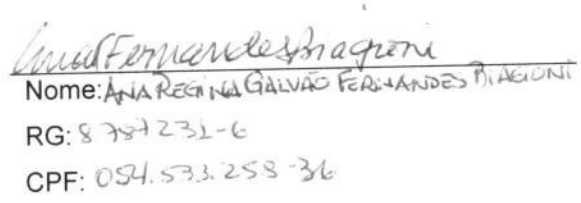 Fernandes Biagioni
Nome: ANA REGINA GALVÃO FERNANDES BIAGIONI
RG: 8787231-6
CPF: 054.533.258-36